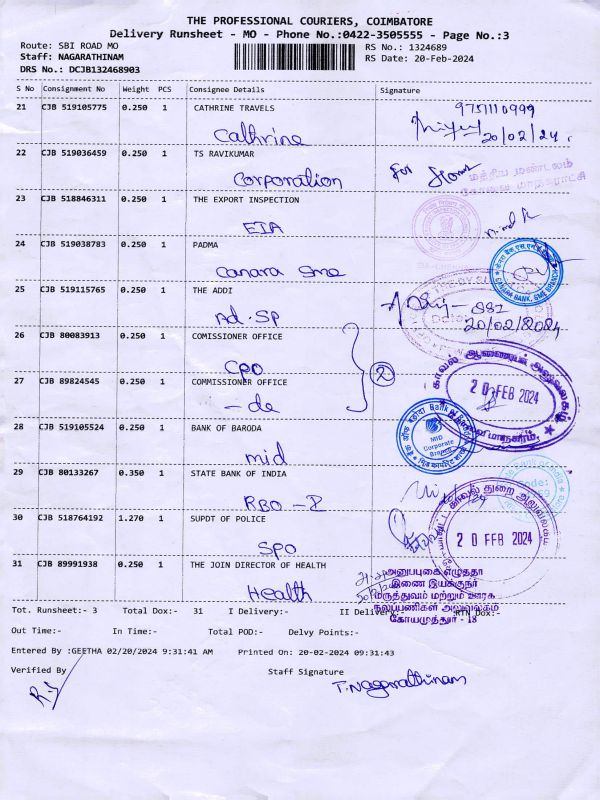 THE PROFESSIONAL COURIERS, COIMBATORE
Delivery Runsheet - MO - Phone No.:0422-3505555 - Page No.:3
Route: SBI ROAD MO
RS No.: 1324689
Staff: NAGARATHINAM
RS Date: 20-Feb-2024
DRS No.: DCJB132468903
S No Consignment No Weight PCS Consignee Details Signature
21 CJB 519105775 0.250 1 CATHRINE TRAVELS 9751110999
Cathrine 20/02/24.
22 CJB 519036459 0.250 1 TS RAVIKUMAR
Corporation for
மத்திய மண்டலம்
கோவை மாநகராட்சி
23 CJB 518846311 0.250 1 THE EXPORT INSPECTION
EIA
24 CJB 519038783 0.250 1 PADMA
Canara Sme
CANARA BANK, SME
25 CJB 519115765 0.250 1 THE ADDI
Ad. SP SSI
20/02/2024
26 CJB 80083913 0.250 1 COMISSIONER OFFICE
CPO
காவல் ஆணையர் அலுவலகம்
2
20 FEB 2024
27 CJB 89824545 0.250 1 COMMISSIONER OFFICE
- do
28 CJB 519105524 0.250 1 BANK OF BARODA
mid
Bank of Baroda
MID
Corporate
Branch
29 CJB 80133267 0.350 1 STATE BANK OF INDIA
RBO - 2
30 CJB 518764192 1.270 1 SUPDT OF POLICE
SPO
காவல் துறை அலுவலகம்
20 FEB 2024
31 CJB 89991938 1 0.250 THE JOIN DIRECTOR OF HEALTH
Health
அனுப்புகை எழுத்தர்
இணை இயக்குநர்
மருத்துவம் மற்றும் ஊரக
நலப்பணிகள் அலுவலகம்
கோயமுத்தூர் - 18
Tot. Runsheet:- 3 Total Dox:- 31 I Delivery:- II Delivery:- RTN Dox:-
Out Time:- In Time:- Total POD:- Delvy Points:-
Entered By :GEETHA 02/20/2024 9:31:41 AM Printed On: 20-02-2024 09:31:43
Verified By Staff Signature
T. Nagarathinam